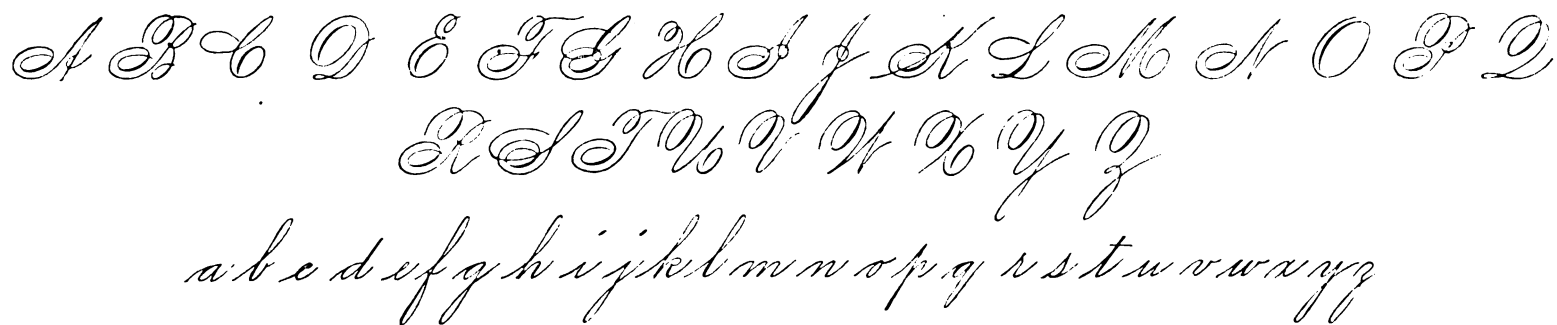 A B C D E F G H I J K L M N O P Q
R S T U V W X Y Z
a b c d e f g h i j k l m n o p q r s t u v w x y z